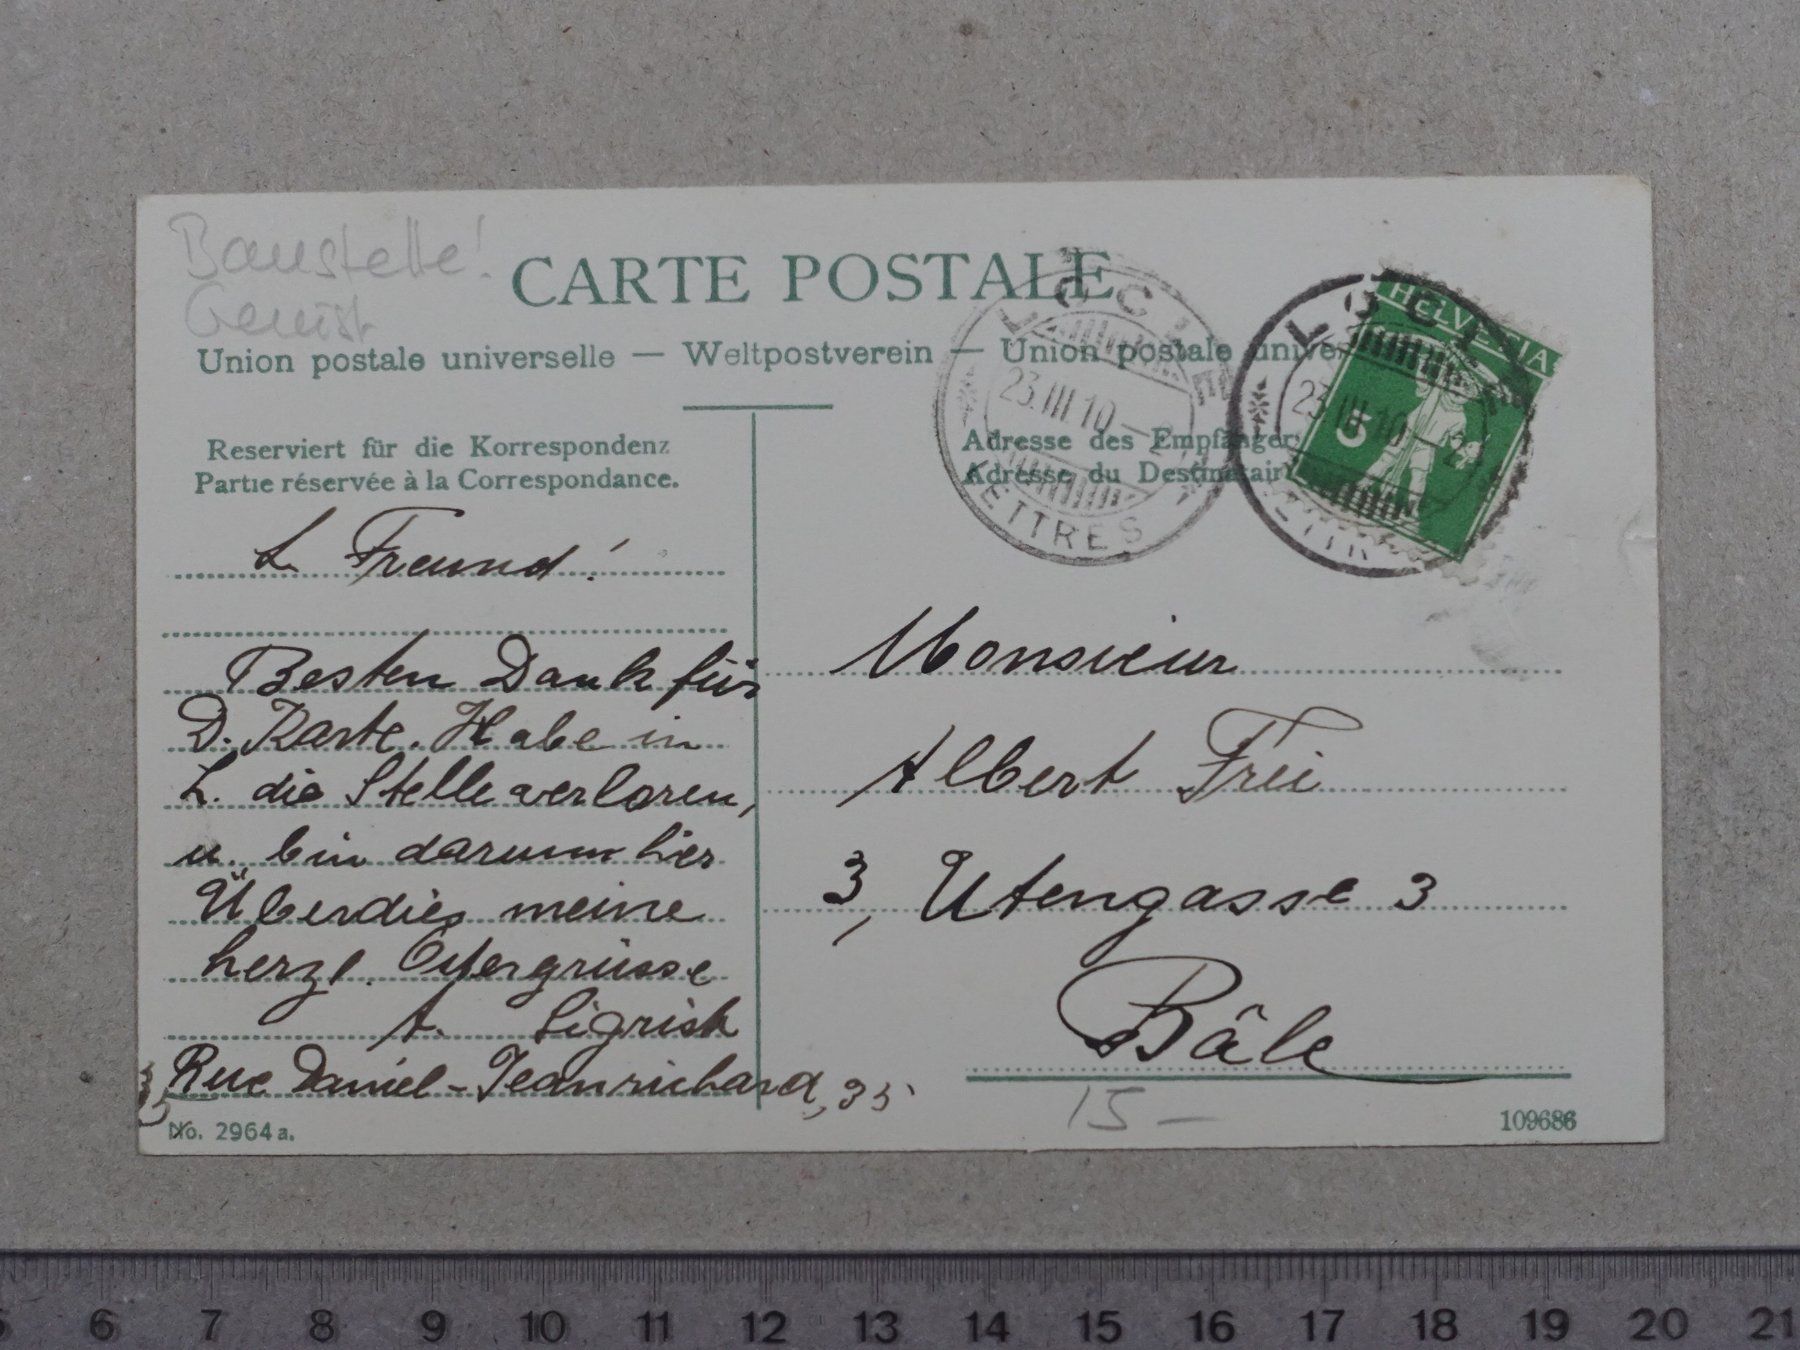 Baustelle!
Gerüst
CARTE POSTALE
Union postale universelle — Weltpostverein — Union postale unive
Reserviert für die Korrespondenz
Partie réservée à la Correspondance.
Adresse des Empfänger
Adresse du Destinatair
LOCLE
23.III.10
LETTRES
LOCLE
23.III.10
HELVETIA
5
L. Freund!
Besten Dank für
D. Karte. Habe in
L. die Stelle verloren,
u. bin darum hier
Überdies meine
herzl. Ostergrüsse
A. Sigrist
Rue Daniel-Jeanrichard, 35
Monsieur
Albert Frei
3, Utengasse 3
Bâle
15 —
No. 2964 a.
109686
5 6 7 8 9 10 11 12 13 14 15 16 17 18 19 20 21